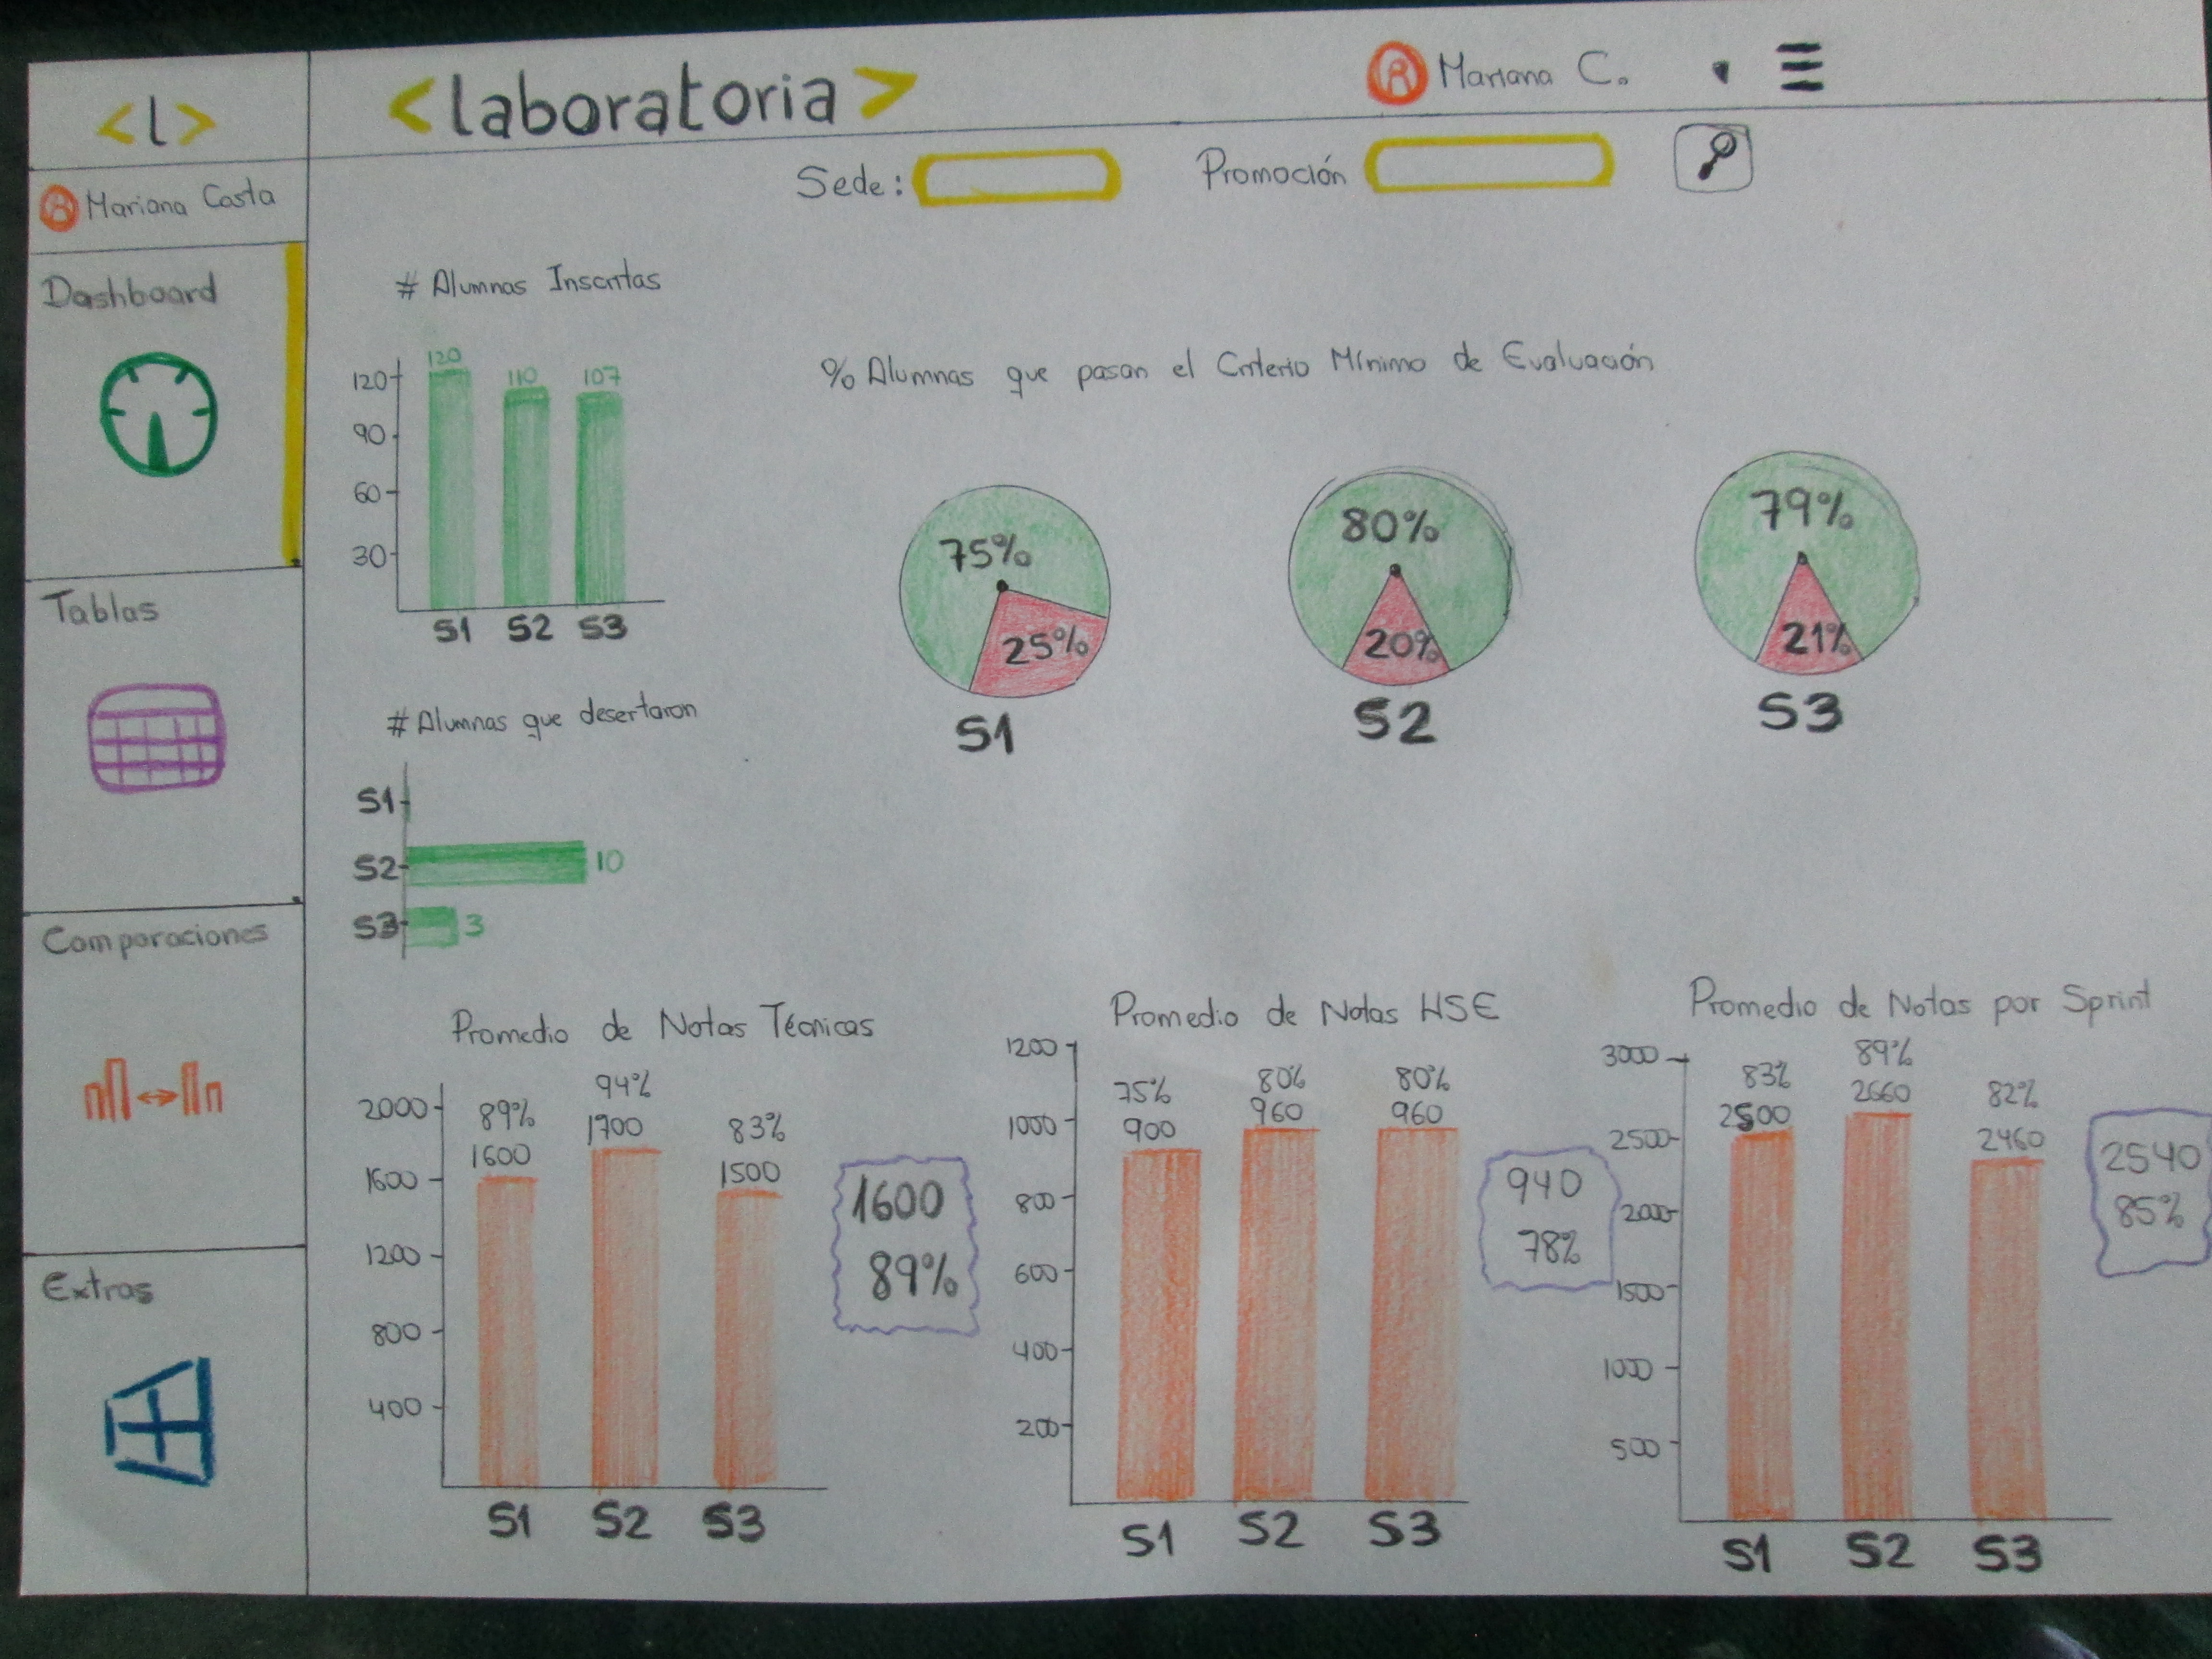 <l>
<laboratoria>
Mariana C.
Mariana Costa
Sede:
Promoción
Dashboard
Tablas
Comparaciones
Extras
# Alumnas Inscritas
120
90
60
30
120
110
107
S1 S2 S3
% Alumnas que pasan el Criterio Mínimo de Evaluación
75%
25%
S1
80%
20%
S2
79%
21%
S3
# Alumnas que desertaron
S1
S2 10
S3 3
Promedio de Notas Técnicas
2000
1600
1200
800
400
89%
1600
94%
1700
83%
1500
S1 S2 S3
1600
89%
Promedio de Notas HSE
1200
1000
800
600
400
200
75%
900
80%
960
80%
960
S1 S2 S3
940
78%
Promedio de Notas por Sprint
3000
2500
2000
1500
1000
500
83%
2500
89%
2660
82%
2460
S1 S2 S3
2540
85%